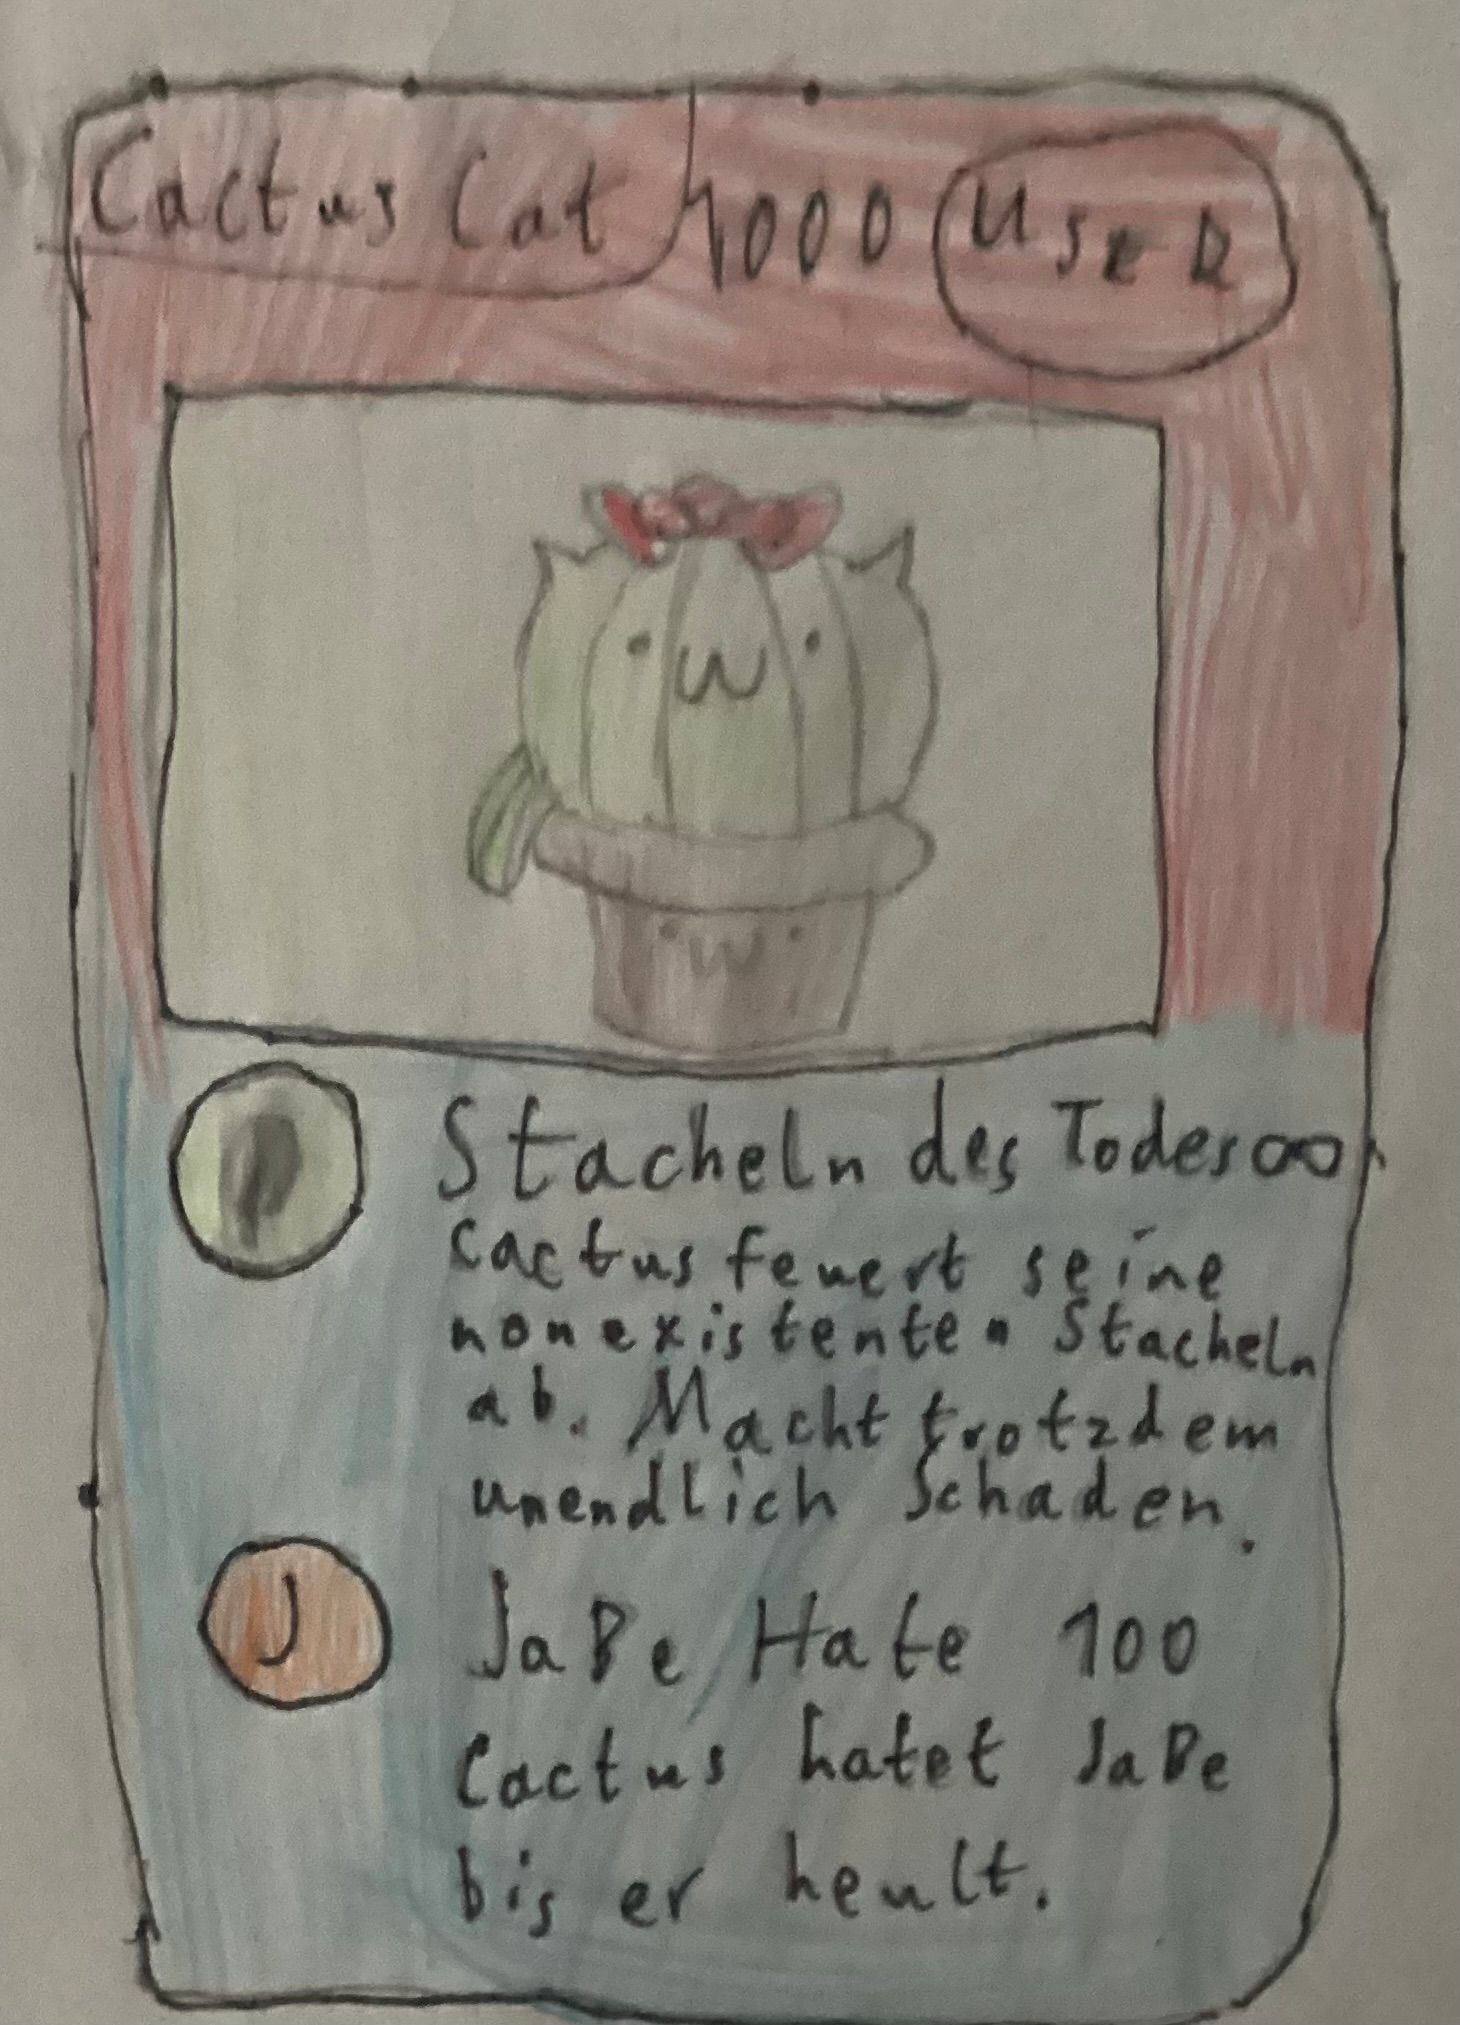 Cactus Cat 1000 User
Stacheln des Todes ∞
Cactus feuert seine
nonexistenten Stacheln
ab. Macht trotzdem
unendlich Schaden.
J
JaBe Hate 100
Cactus hatet JaBe
bis er heult.